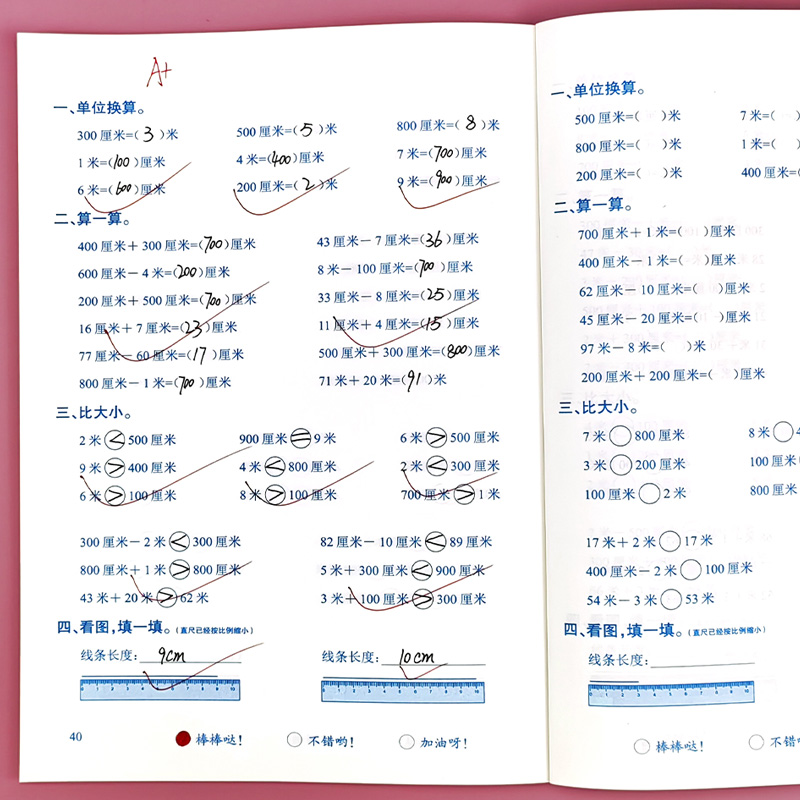 A+
一、单位换算。
300 厘米=( 3 )米 500 厘米=( 5 )米 800 厘米=( 8 )米
1 米=(100)厘米 4 米=(400)厘米 7 米=(700)厘米
6 米=(600)厘米 200 厘米=( 2 )米 9 米=(900)厘米
二、算一算。
400 厘米+300 厘米=(700)厘米 43 厘米-7 厘米=(36)厘米
600 厘米-4 米=(200)厘米 8 米-100 厘米=(700)厘米
200 厘米+500 厘米=(700)厘米 33 厘米-8 厘米=(25)厘米
16 厘米+7 厘米=(23)厘米 11 厘米+4 厘米=(15)厘米
77 厘米-60 厘米=(17)厘米 500 厘米+300 厘米=(800)厘米
800 厘米-1 米=(700)厘米 71 米+20 米=(91)米
三、比大小。
2 米<500 厘米 900 厘米=9 米 6 米>500 厘米
9 米>400 厘米 4 米<800 厘米 2 米<300 厘米
6 米>100 厘米 8 米>100 厘米 700 厘米>1 米
300 厘米-2 米<300 厘米 82 厘米-10 厘米<89 厘米
800 厘米+1 米>800 厘米 5 米+300 厘米<900 厘米
43 米+20 米>62 米 3 米+100 厘米>300 厘米
四、看图,填一填。(直尺已经按比例缩小)
线条长度: 9cm 线条长度: 10cm
0 1 2 3 4 5 6 7 8 9 10 0 1 2 3 4 5 6 7 8 9 10
40 棒棒哒! 不错哟! 加油呀!
一、单位换算。
500 厘米=( )米 7 米=( )
800 厘米=( )米 1 米=( )
200 厘米=( )米 400 厘米=(
二、算一算。
700 厘米+1 米=( )厘米
400 厘米-1 米=( )厘米
62 厘米-10 厘米=( )厘米
45 厘米-20 厘米=( )厘米
97 米-8 米=( )米
200 厘米+200 厘米=( )厘米
三、比大小。
7 米○800 厘米 8 米○4
3 米○200 厘米 100 厘米
100 厘米○2 米 800 厘米
17 米+2 米○17 米
400 厘米-2 米○100 厘米
54 米-3 米○53 米
四、看图,填一填。(直尺已经按比例缩小)
线条长度:
0 1 2 3 4 5 6 7 8 9 10
棒棒哒! 不错